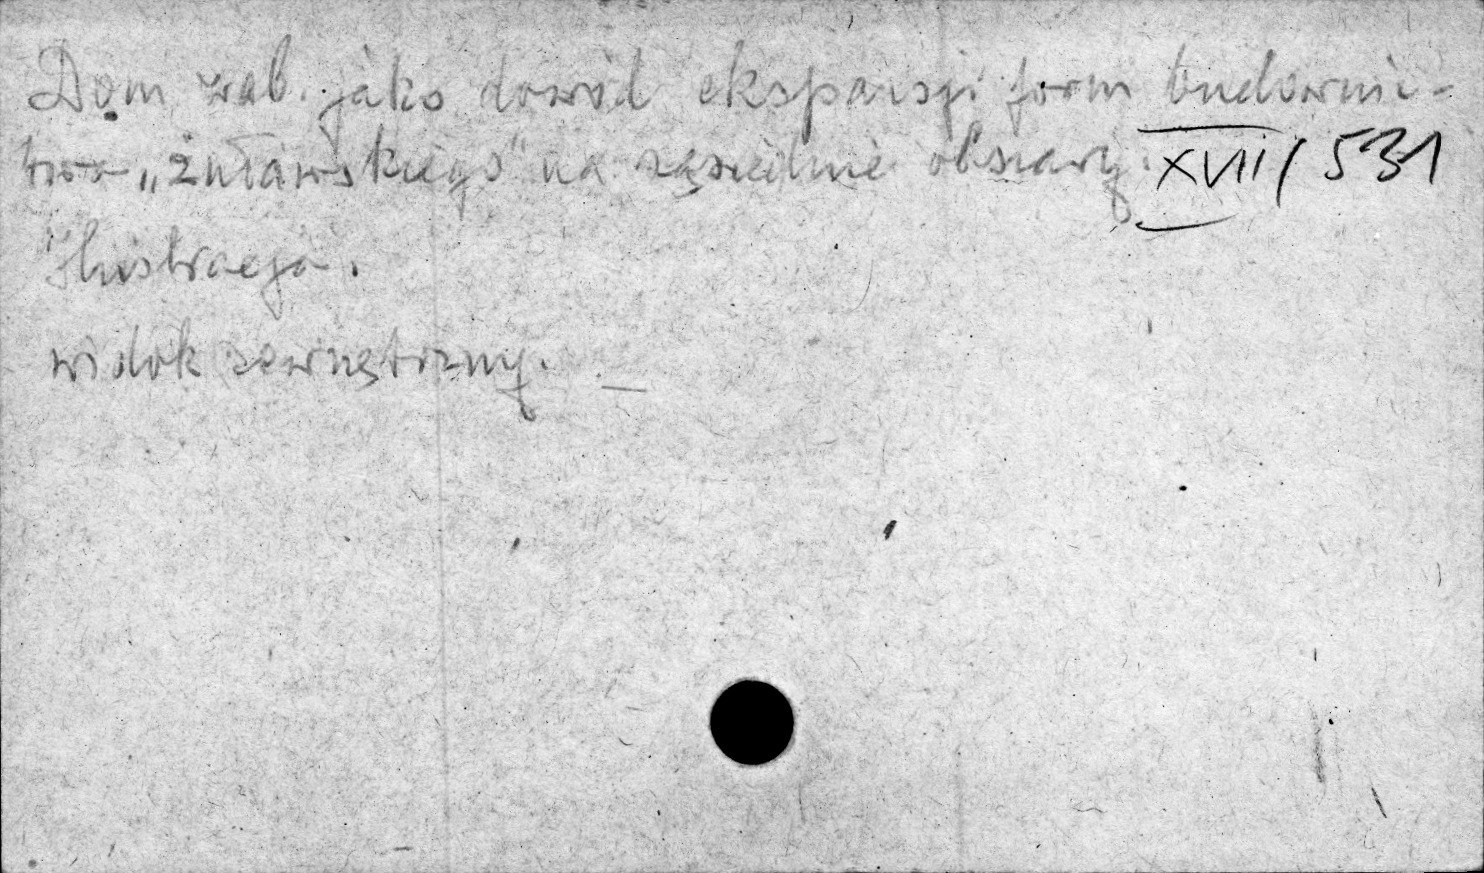 Dom zab. jako dowód ekspansji form budownic-
twa „żuławskiego" na sąsiednie obszary.
XVII/531
Ilustracja.
widok zewnętrzny. —